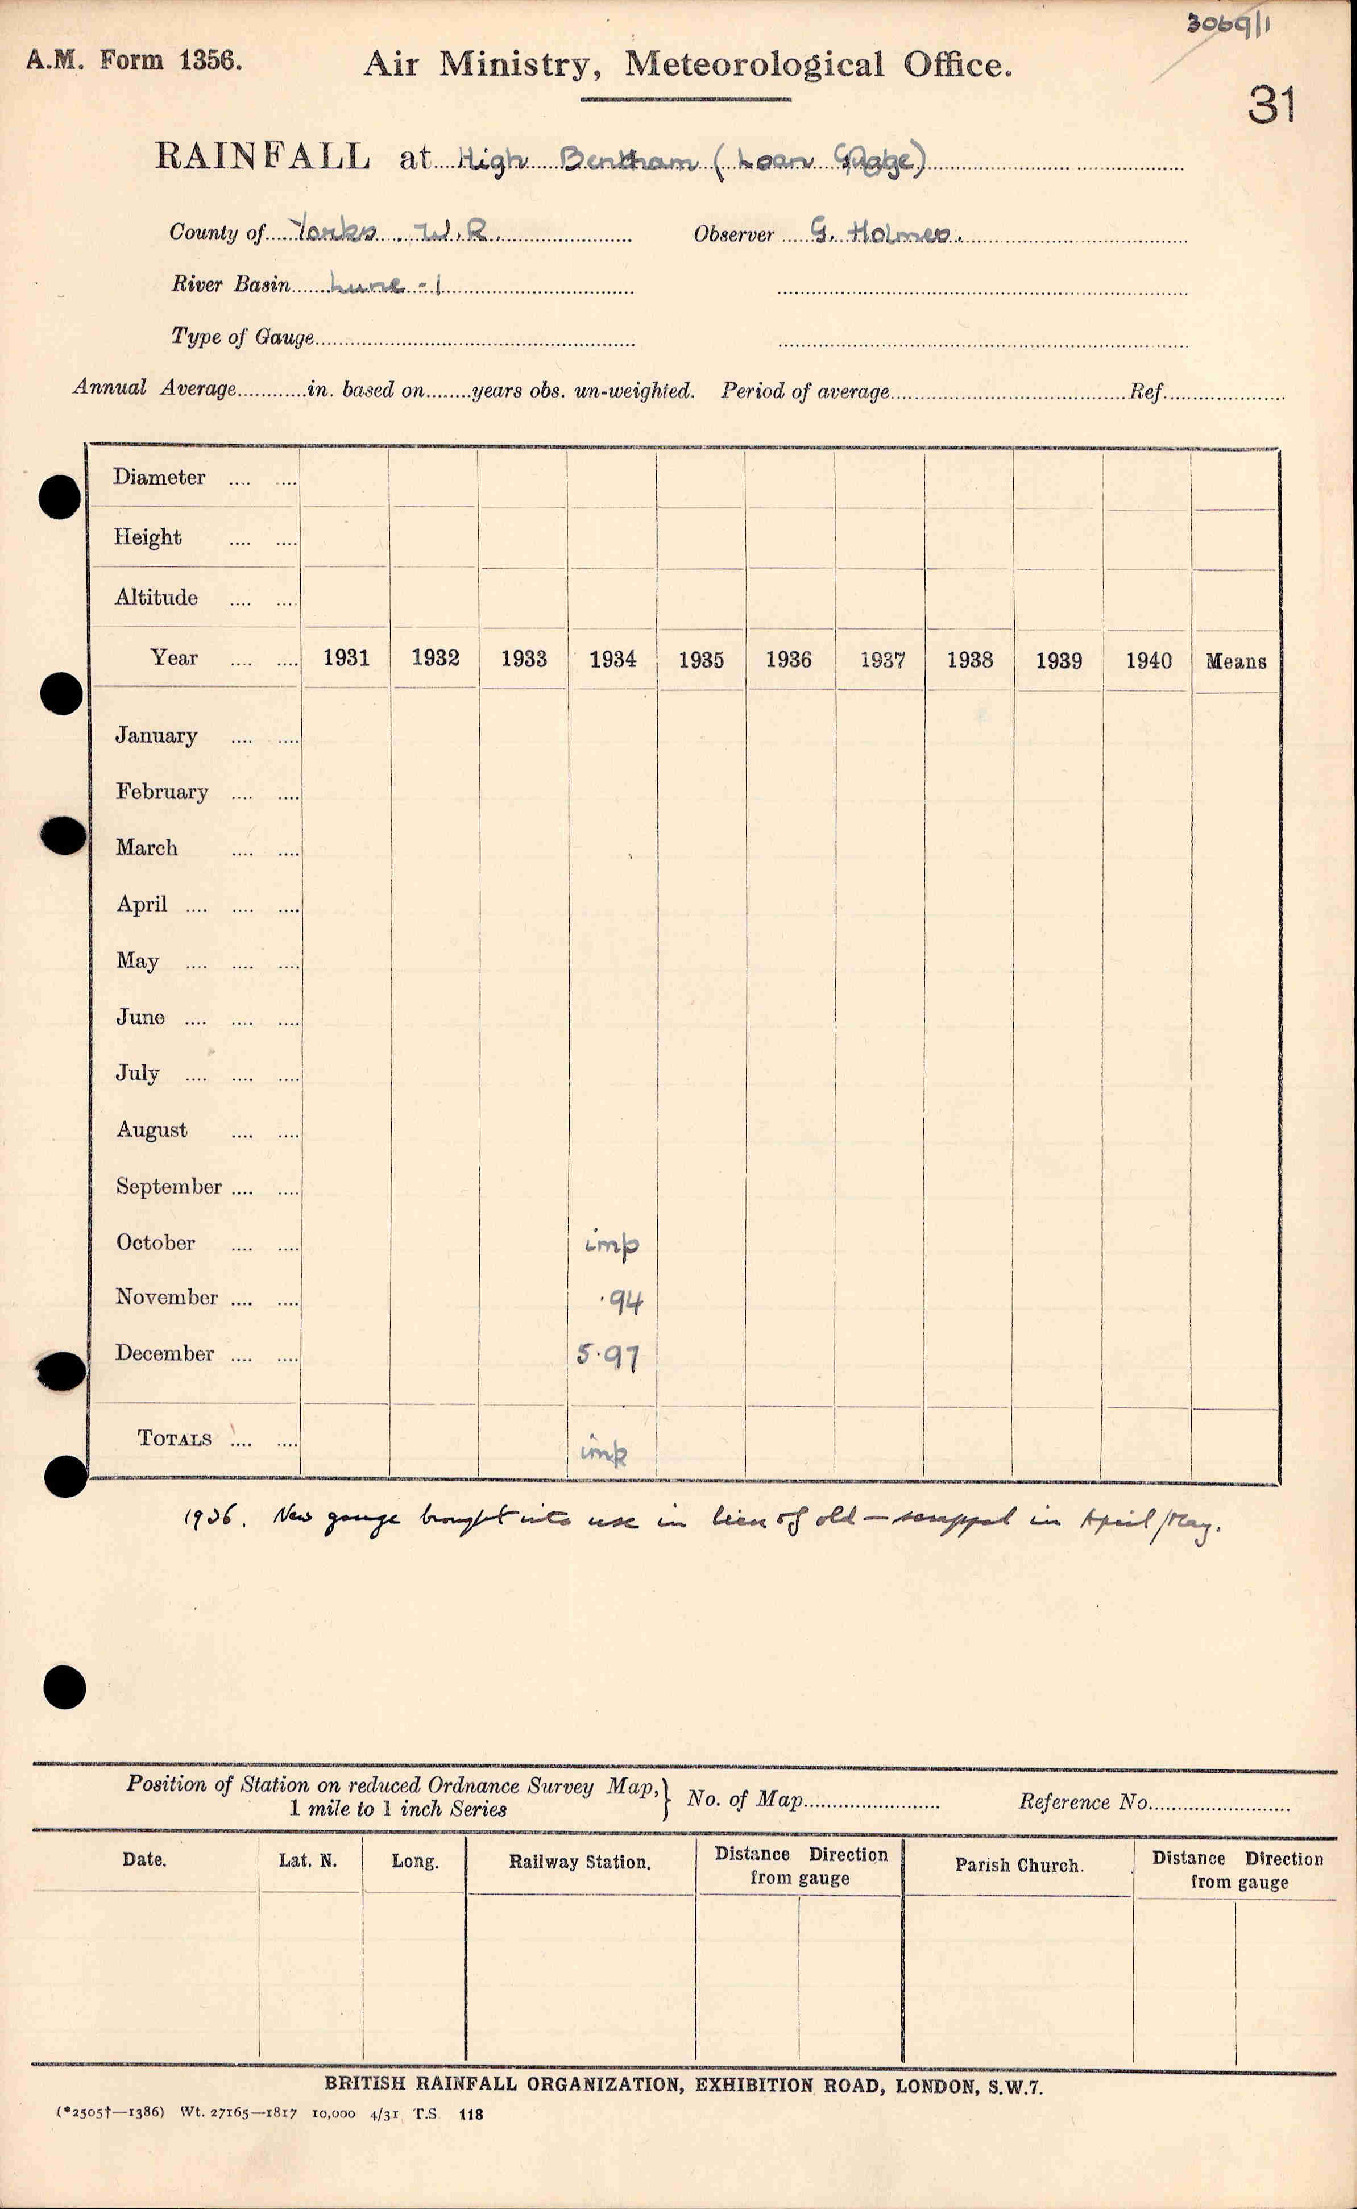 3069/1
A.M. Form 1356.
Air Ministry, Meteorological Office.
31
RAINFALL at High Bentham (Loan Gauge)
County of Yorks. W.R. Observer G. Holmes.
River Basin Lune - 1
Type of Gauge
Annual Average in. based on years obs. un-weighted. Period of average Ref.
Diameter
Height
Altitude
Year 1931 1932 1933 1934 1935 1936 1937 1938 1939 1940 Means
January
February
March
April
May
June
July
August
September
October imp
November .94
December 5.97
TOTALS imp
1936. New gauge brought into use in lieu of old — scrapped in April/May.
Position of Station on reduced Ordnance Survey Map, } No. of Map Reference No.
1 mile to 1 inch Series
Date. Lat. N. Long. Railway Station. Distance Direction from gauge Parish Church. Distance Direction from gauge
BRITISH RAINFALL ORGANIZATION, EXHIBITION ROAD, LONDON, S.W.7.
(*2505†—1386) Wt. 27165—1817 10,000 4/31 T.S. 118